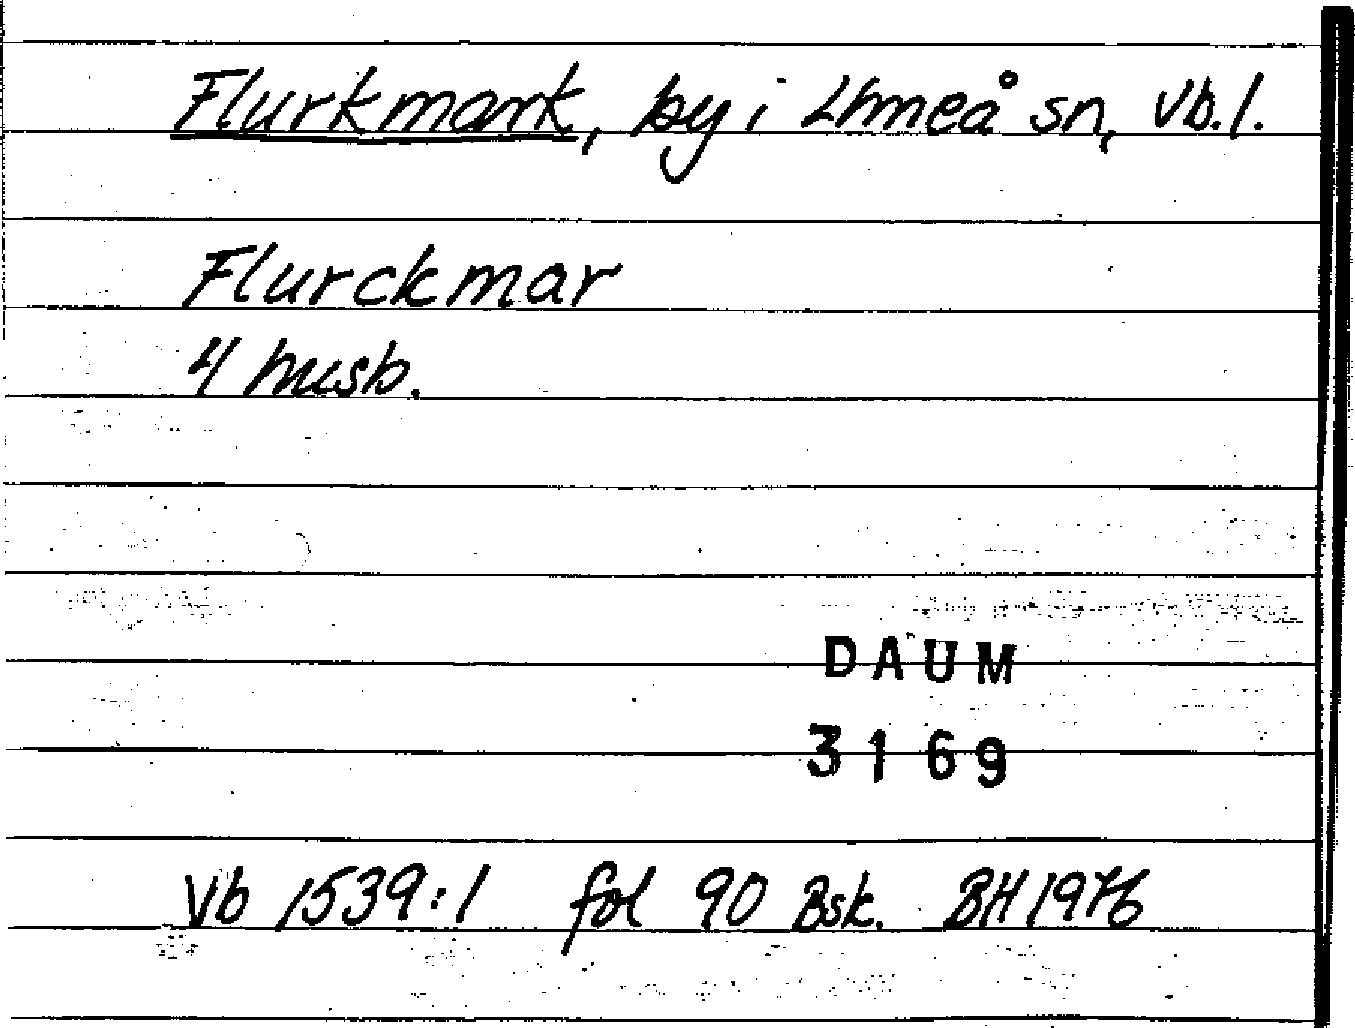 Flurkmark, by i Umeå sn, Vb. l.
Flurckmar
4 husb.
DAUM
3169
Vb 1539:1 fol 90 Bsk. BH 1976